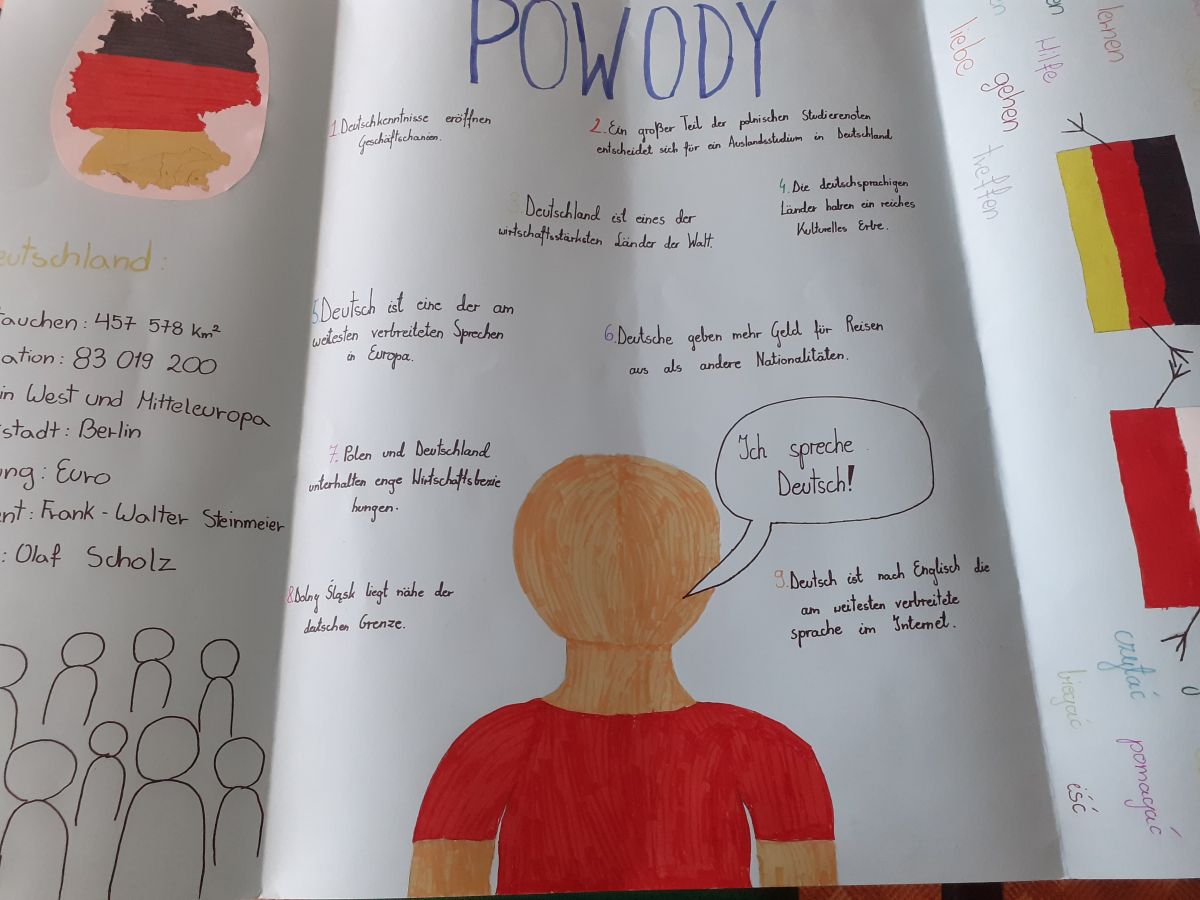 POWODY
1. Deutschkenntnisse eröffnen
Geschäftschanien.
2. Ein großer Teil der polnischen Studierenoten
entscheidet sich für ein Auslandsstudium in Deutschland
3. Deutschland ist eines der
wirtschaftsstärksten Länder der Walt.
4. Die deutschsprachigen
Länder haben ein reiches
Kulturelles Erbe.
5. Deutsch ist eine der am
weitesten verbreiteten Sprechen
in Europa.
6. Deutsche geben mehr Geld für Reisen
aus als andere Nationalitäten.
7. Polen und Deutschland
unterhalten enge Wirtschaftsbezie
hungen.
8. Dolny Śląsk liegt nähe der
deutschen Grenze.
9. Deutsch ist nach Englisch die
am weitesten verbreitete
sprache im Internet.
Ich spreche
Deutsch!
eutschland:
auchen: 457 578 km²
ation: 83 019 200
in West und Mitteleuropa
stadt: Berlin
ung: Euro
ent: Frank-Walter Steinmeier
: Olaf Scholz
lernen
Hilfe
liebe
gehen
treffen
czytać
biegać
pomagać
iść